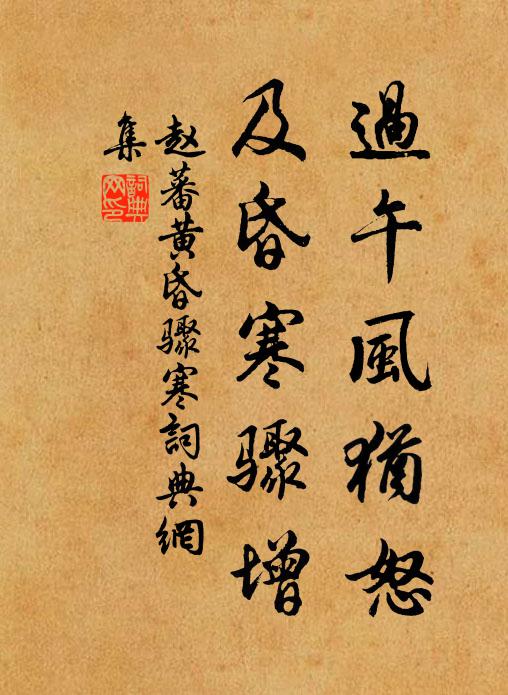 過午風猶怒
及昏寒驟增
赵蕃黄昏驟寒詞典網
集
詞典
网印